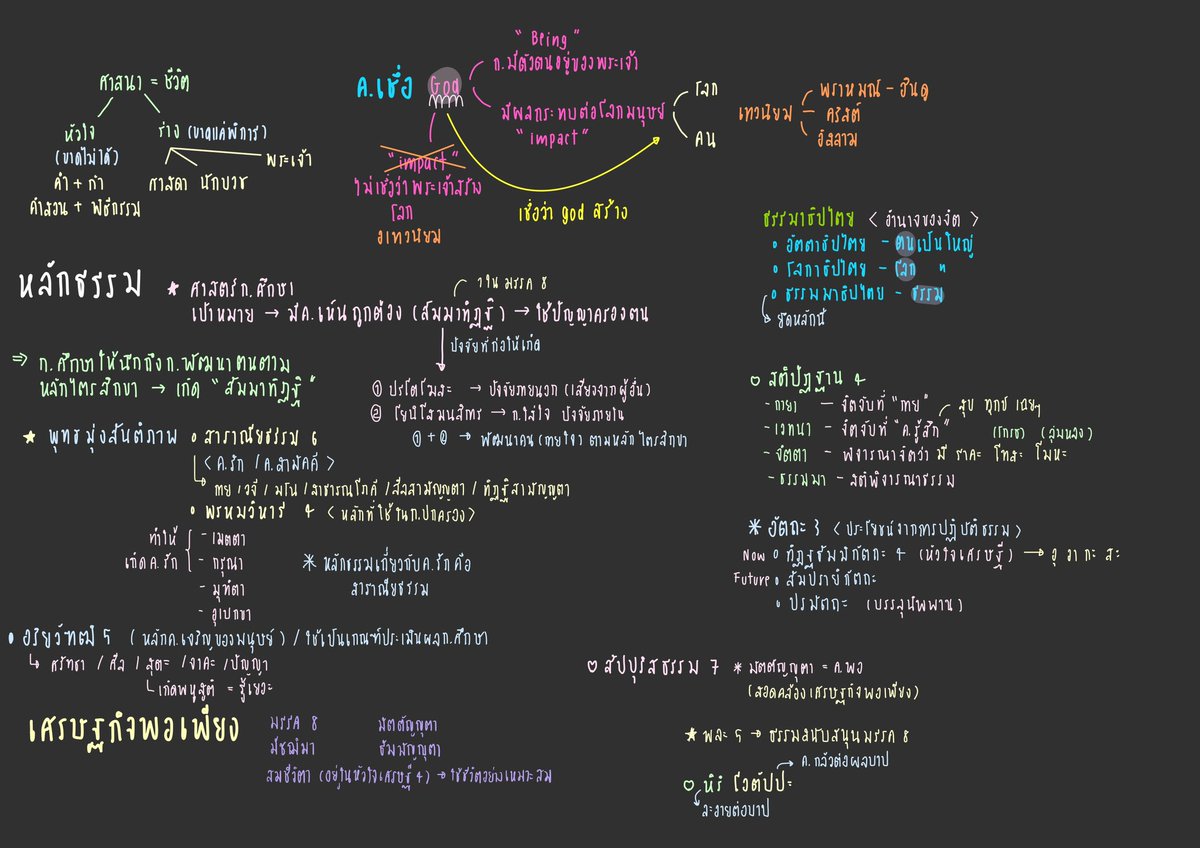 ศาสนา = ชีวิต
หัวใจ
(ขาดไม่ได้)
คำ + ทำ
คำสอน + พิธีกรรม
ร่าง (ขาดแค่พิการ)
ศาสดา นักบวช
พระเจ้า
ค.เชื่อ God
"Being"
ก.มีตัวตนอยู่ของพระเจ้า
มีผลกระทบต่อโลกมนุษย์
"impact"
โลก
คน
"impact"
ไม่เชื่อว่าพระเจ้าสร้าง
โลก
อเทวนิยม
เชื่อว่า god สร้าง
เทวนิยม
พราหมณ์ - ฮินดู
คริสต์
อิสลาม
ธรรมาธิปไตย < อำนาจของจิต >
อัตตาธิปไตย - ตนเป็นใหญ่
โลกาธิปไตย - โลก "
ธรรมมาธิปไตย - ธรรม
ยึดหลักนี้
หลักธรรม
* ศาสตร์ก.ศึกษา
เป้าหมาย → มีค.เห็นถูกต้อง (สัมมาทิฏฐิ) → ใช้ปัญญาครองตน
1 ใน มรรค 8
ปัจจัยที่ก่อให้เกิด
① ปรโตโฆสะ → ปัจจัยภายนอก (เสียงจากผู้อื่น)
② โยนิโสมนสิการ → ก.ใส่ใจ ปัจจัยภายใน
① + ② → พัฒนาคน (กาย ใจ) ตามหลักไตรสิกขา
⇒ ก.ศึกษาให้นึกถึงก.พัฒนาตนตาม
หลักไตรสิกขา → เกิด "สัมมาทิฏฐิ"
★ พุทธมุ่งสันติภาพ
สาราณียธรรม 6
< ค.รัก / ค.สามัคคี >
กาย / วจี / มโน / สาธารณโภคี / สีลสามัญญตา / ทิฏฐิสามัญญตา
พรหมวิหาร 4 < หลักที่ใช้ในก.ปกครอง >
ทำให้
เกิดค.รัก
- เมตตา
- กรุณา
- มุทิตา
- อุเบกขา
* หลักธรรมเกี่ยวกับค.รัก คือ
สาราณียธรรม
อริยวัฑฒิ 5 (หลักค.เจริญของมนุษย์) / ใช้เป็นเกณฑ์ประเมินผลก.ศึกษา
ศรัทธา / ศีล / สุตะ / จาคะ / ปัญญา
เกิดพหูสูติ = รู้เยอะ
เศรษฐกิจพอเพียง
มรรค 8
มัชฌิมา
มัตตัญญุตา
ธัมมัญญุตา
สมชีวิตา (อยู่ในหัวใจเศรษฐี 4) → ใช้ชีวิตอย่างเหมาะสม
สติปัฏฐาน 4
- กายา - จิตจับที่ "กาย"
- เวทนา - จิตจับที่ "ค.รู้สึก"
สุข ทุกข์ เฉยๆ
(โกรธ) (ลุ่มหลง)
- จิตตา - พิจารณาจิตว่า มี ราคะ โทสะ โมหะ
- ธรรมมา - สติพิจารณาธรรม
* อัตถะ 3 < ประโยชน์จากการปฏิบัติธรรม >
Now ทิฏฐธัมมิกัตถะ 4 (หัวใจเศรษฐี) → อุ อา กะ สะ
Future สัมปรายิกัตถะ
ปรมัตถะ (บรรลุนิพพาน)
♡ สัปปุริสธรรม 7 * มัตตัญญุตา = ค.พอ
(สอดคล้องเศรษฐกิจพอเพียง)
★ พละ 5 → ธรรมสนับสนุนมรรค 8
ค.กลัวต่อผลบาป
♡ หิริ โอตัปปะ
ละอายต่อบาป